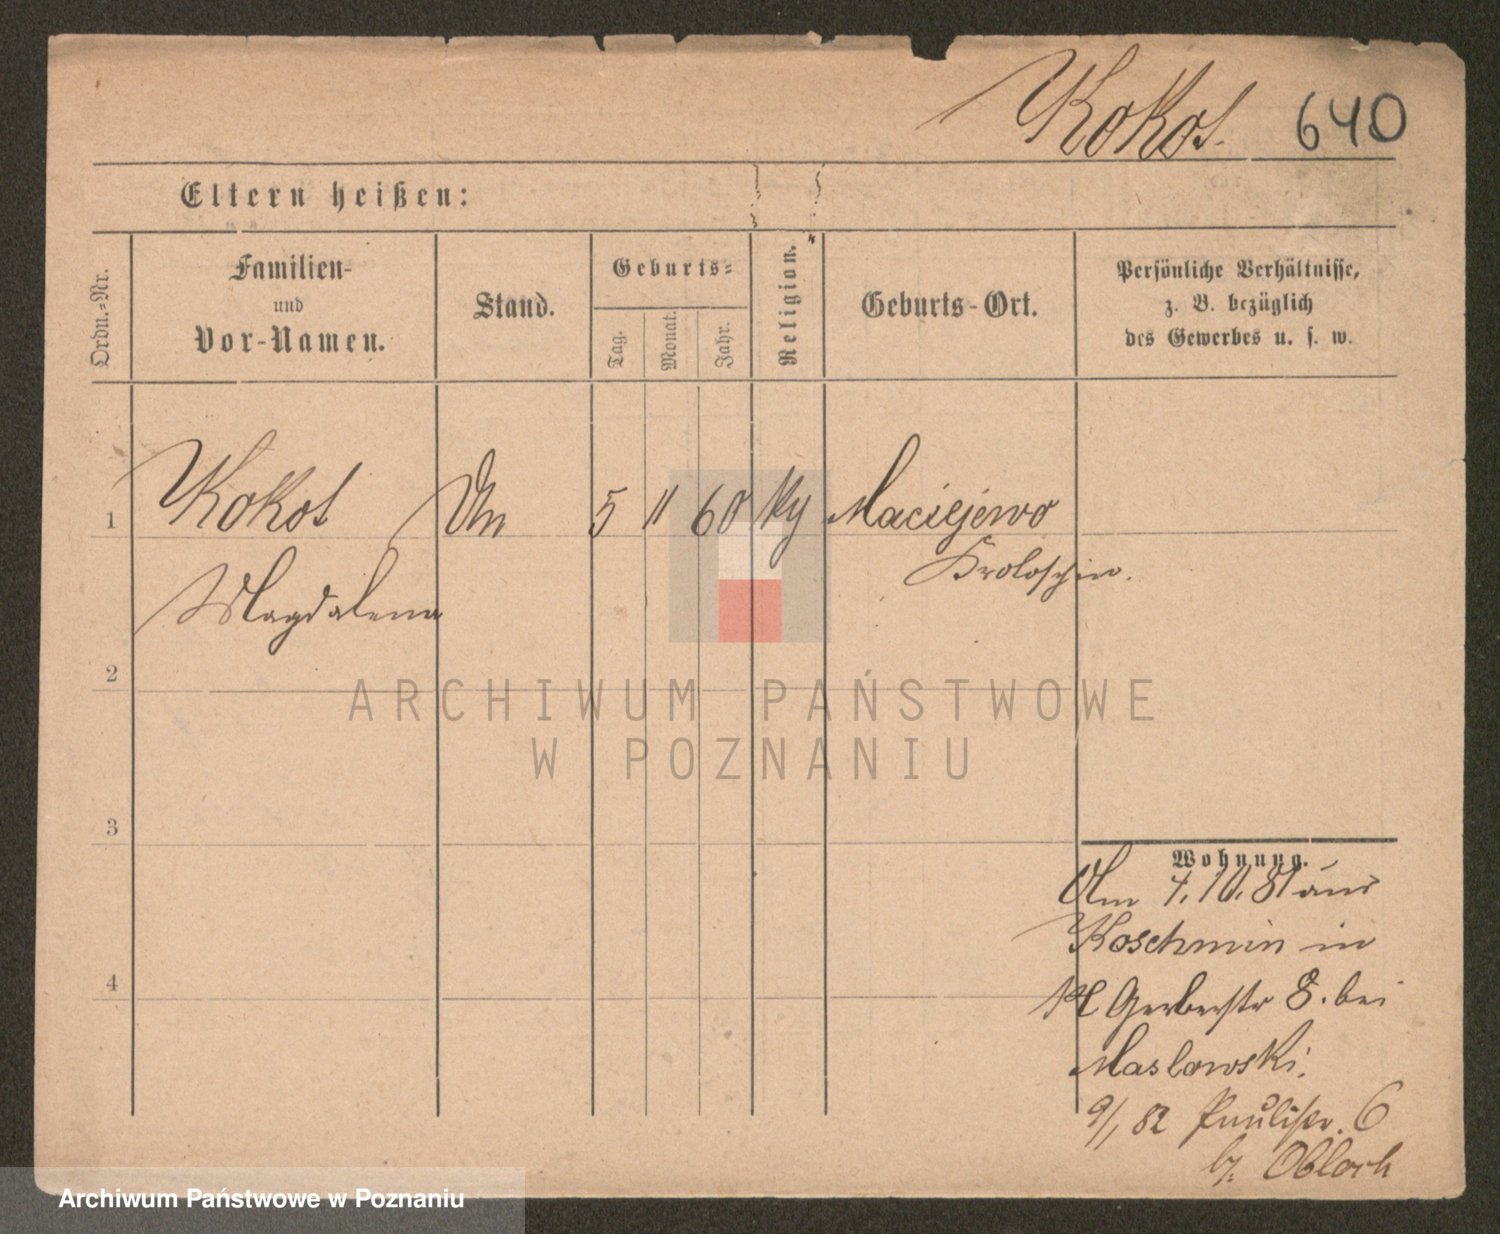 Kokot. 640
Eltern heißen:
Ordn.-Nr.
Familien-
und
Vor-Namen.
Stand.
Geburts-
Tag.
Monat.
Jahr.
Religion.
Geburts-Ort.
Persönliche Verhältnisse,
z. B. bezüglich
des Gewerbes u. s. w.
1 Kokot 5 11 60 Maciejewo
Krotoschin.
Magdalena
2
3
4
Wohnung.
Am 4.10.81 aus
Koschmin in
Gerberstr 8. bei
Maslowski.
9/1 82 Paulistr. 6
b.
ARCHIWUM PAŃSTWOWE
W POZNANIU
Archiwum Państwowe w Poznaniu